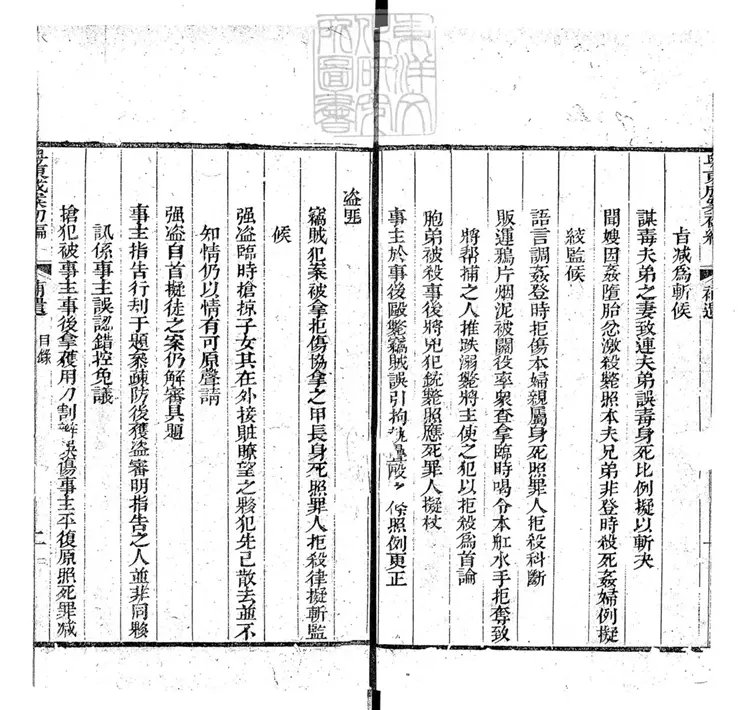 粵東成案初編
補遺
旨減爲斬候
謀毒夫弟之妻致連夫弟誤毒身死比例擬以斬決
聞嫂因姦墮胎忿激殺斃照本夫兄弟非登時殺死姦婦例擬
絞監候
語言調姦登時拒傷本婦親屬身死照罪人拒殺科斷
販運鴉片烟泥被關役率衆查拿臨時喝令本舡水手拒奪致
將帮捕之人推跌溺斃將主使之犯以拒殺爲首論
胞弟被殺事後將兇犯銃斃照應死罪人擬杖
事主於事後毆斃竊賊誤引拘 條照例更正
盜匪
竊賊犯案被拿拒傷協拿之甲長身死照罪人拒殺律擬斬監
候
强盜臨時搶掠子女其在外接賍瞭望之夥犯先已散去並不
知情仍以情有可原聲請
强盜自首擬徒之案仍解審具題
事主指告行刦于題叅疎防後獲盜審明指告之人並非同夥
訊係事主誤認錯控免議
搶犯被事主事後拿獲用刀割 誤傷事主平復原照死罪減
粵東成案初編
補遺
目錄
二